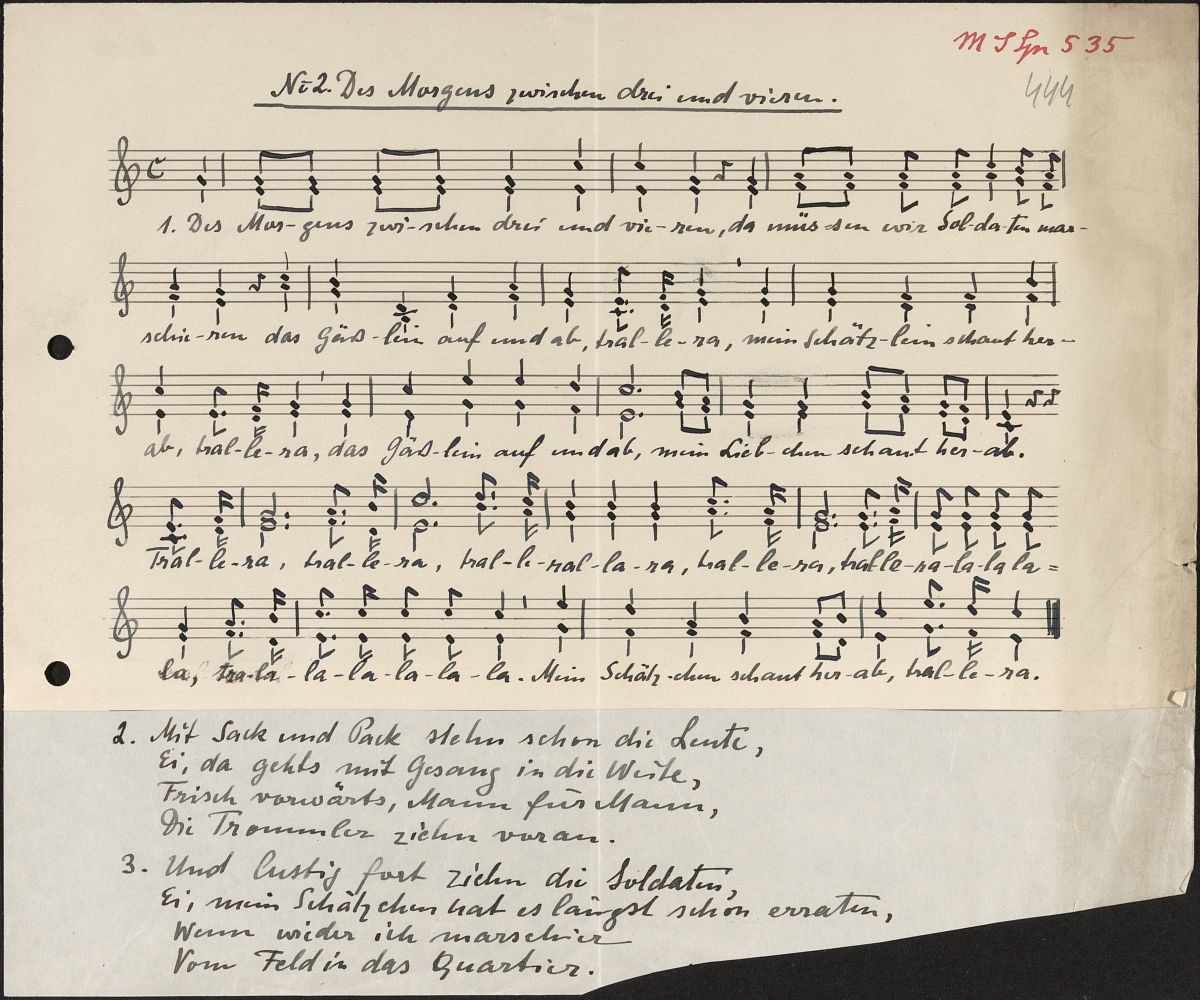 M S Gn 535
444
No 2. Des Morgens zwischen drei und vieren.
1. Des Mor-gens zwi-schen drei und vie-ren, da müs-sen wir Sol-da-ten mar-
schie-ren das Gäß-lein auf und ab, tral-le-ra, mein Schätz-lein schaut her-
ab, tral-le-ra, das Gäß-lein auf und ab, mein Lieb-chen schaut her-ab.
Tral-le-ra, tral-le-ra, tral-le-ral-la-ra, tral-le-ra, tralle-ra-la-la la=
la, tra-la-la-la-la-la-la. Mein Schätz-chen schaut her-ab, tral-le-ra.
2. Mit Sack und Pack stehn schon die Leute,
Ei, da gehts mit Gesang in die Weite,
Frisch vorwärts, Mann für Mann,
Die Trommler ziehn voran.
3. Und lustig fort ziehn die Soldaten,
Ei, mein Schätzchen hat es längst schon erraten,
Wenn wieder ich marschier
Vom Feld in das Quartier.